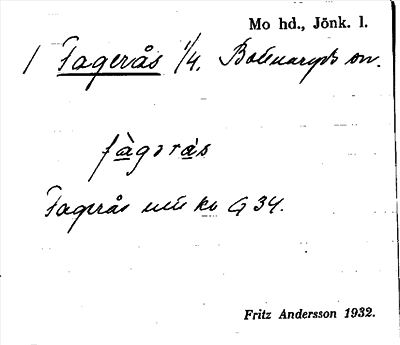 Mo hd., Jönk. l.
1 Fagerås 1/4. Bottnaryds sn.
fàgərås
Fagerås
G 34.
Fritz Andersson 1932.